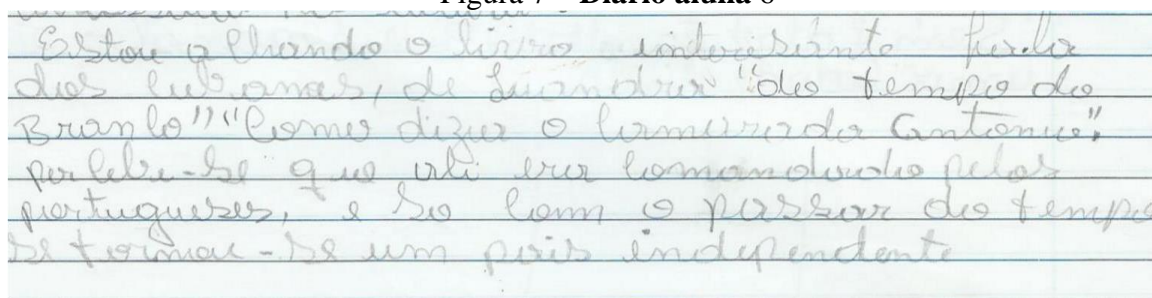 Figura 7 – Diário aluna 8
Estou olhando o livro interesante fala
dos cubanos, de Luandra "do tempo do
Branco" "Como dizia o Camarada Antonio",
percebe-se que ali era comandado pelos
portugueses, e so com o passar do tempo
se tornou-se um pais independente